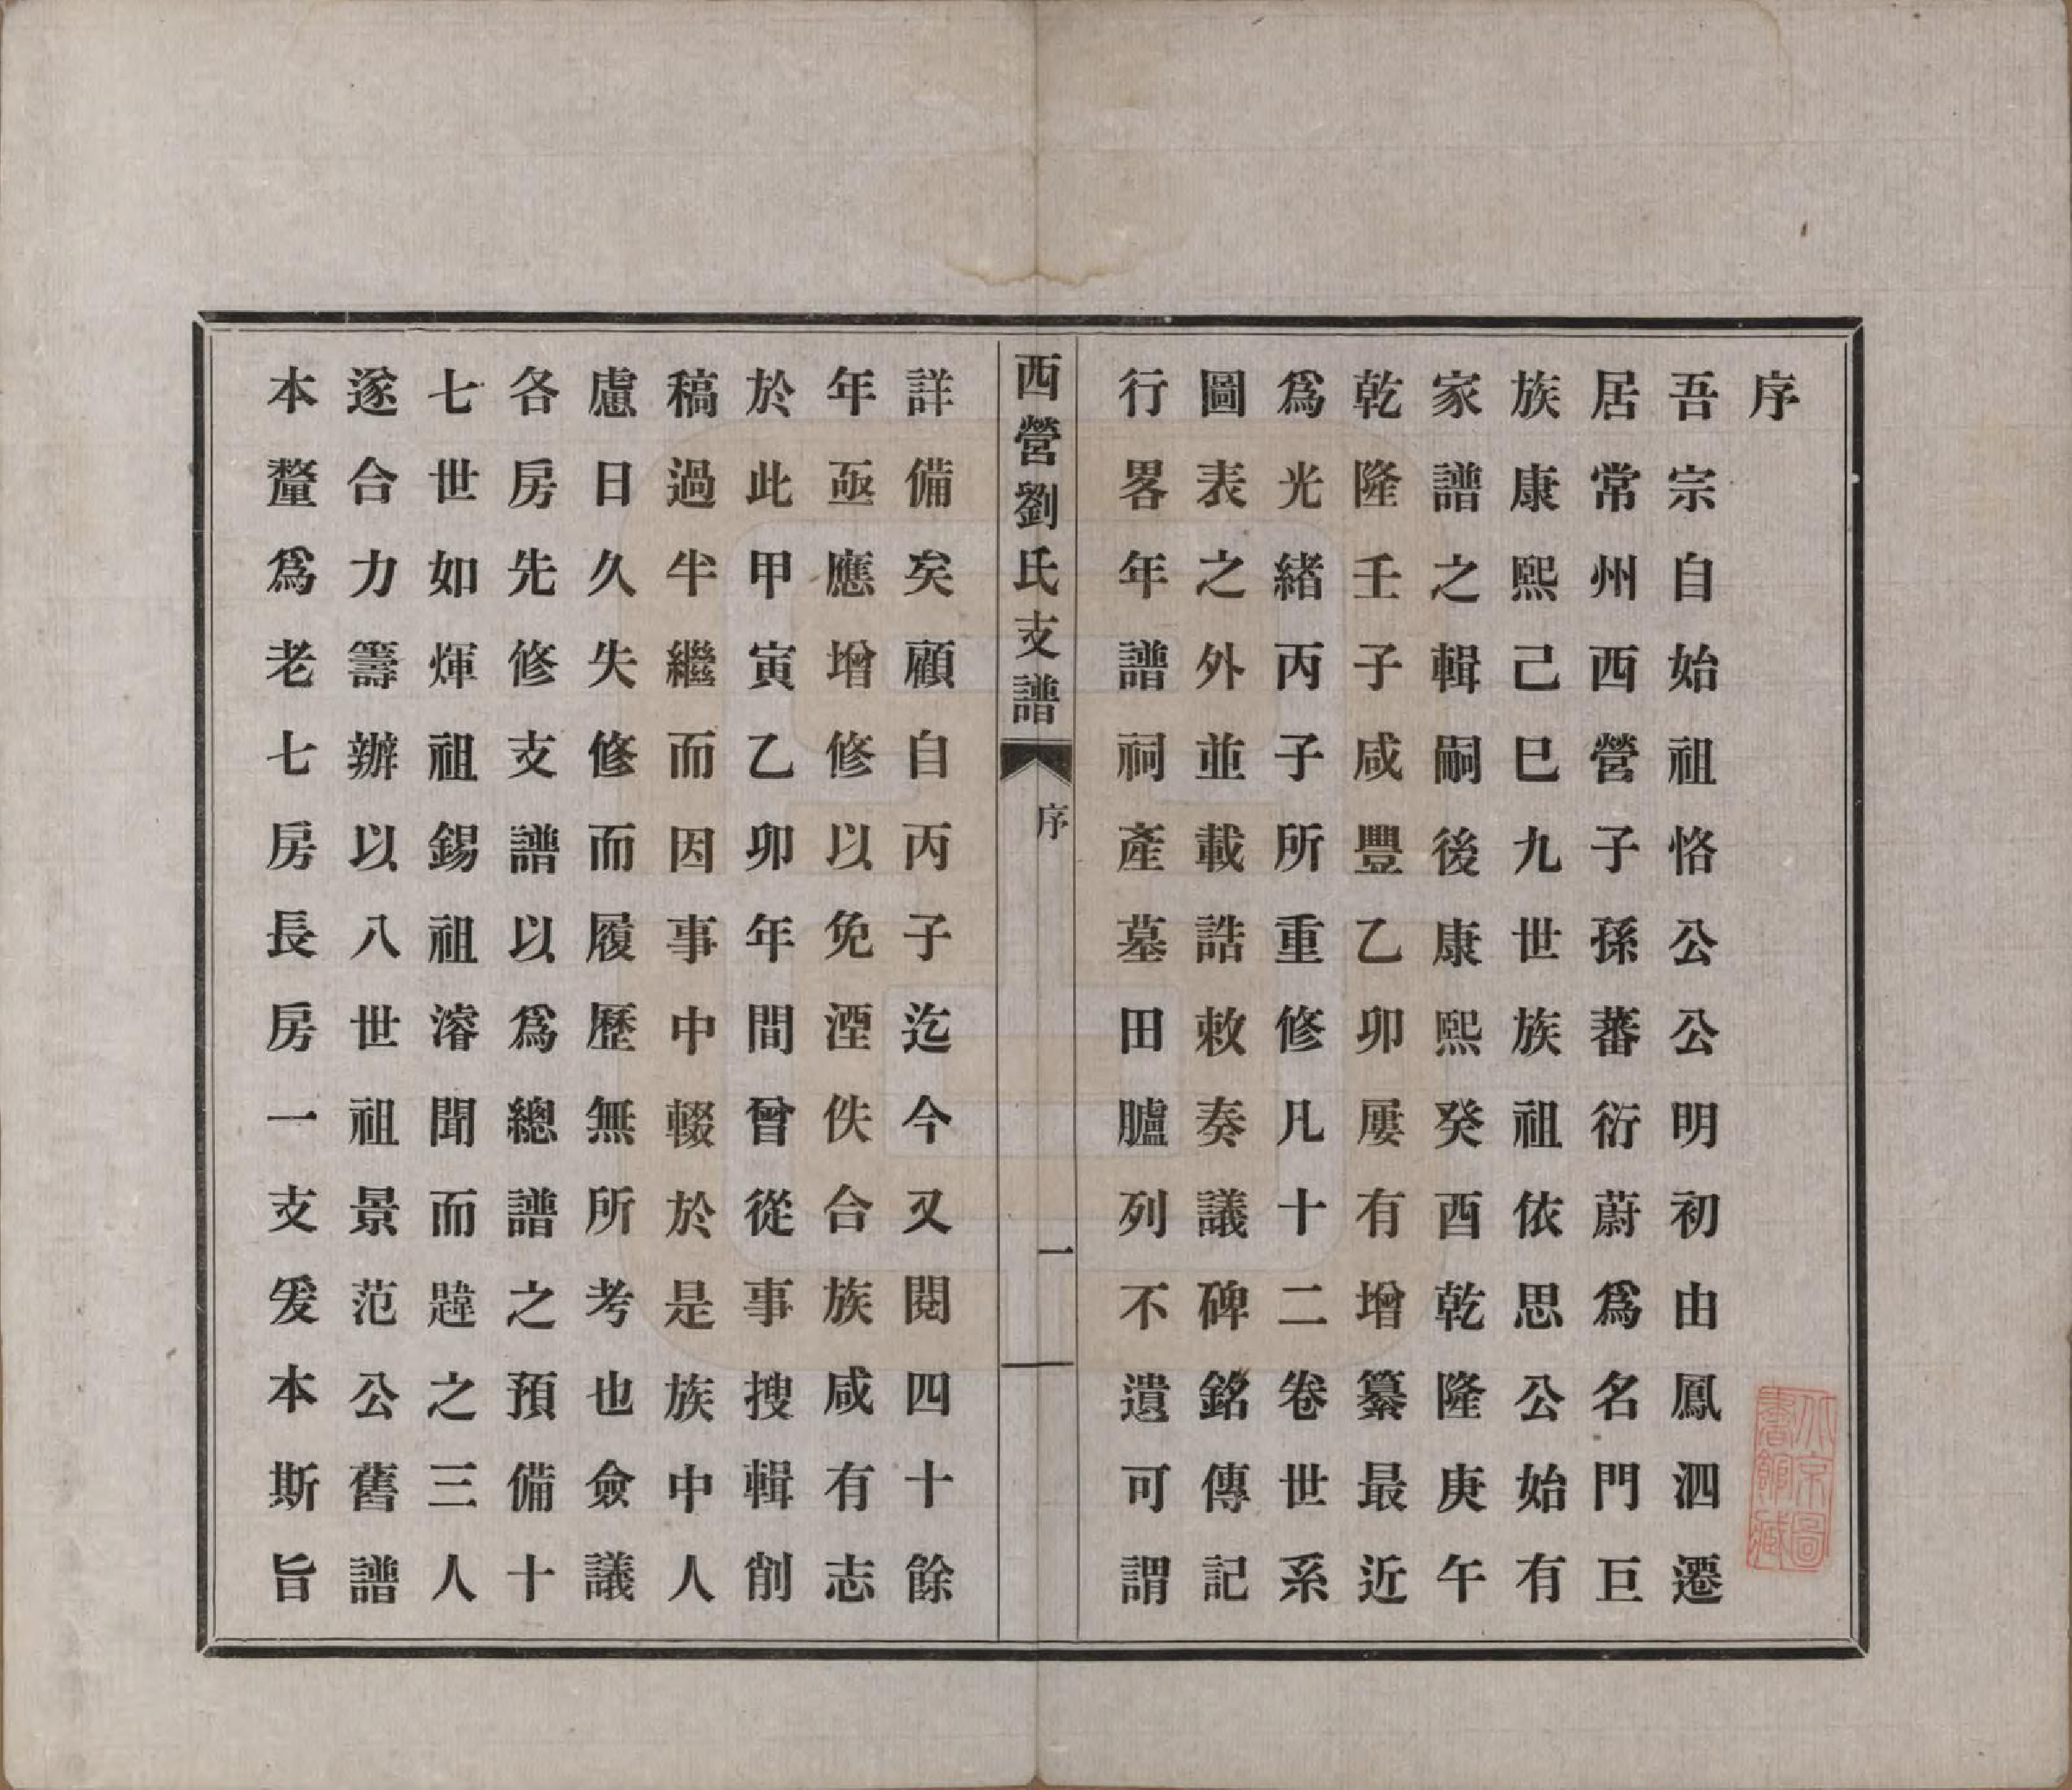 序
吾宗自始祖恪公公明初由鳳泗遷
居常州西營子孫蕃衍蔚爲名門巨
族康熙己巳九世族祖依思公始有
家譜之輯嗣後康熙癸酉乾隆庚午
乾隆壬子咸豐乙卯屢有增纂最近
爲光緒丙子所重修凡十二卷世系
圖表之外並載誥敕奏議碑銘傳記
行畧年譜祠產墓田臚列不遺可謂
西營劉氏支譜
序
一
詳備矣顧自丙子迄今又閱四十餘
年亟應增修以免湮佚合族咸有志
於此甲寅乙卯年間曾從事搜輯削
稿過半繼而因事中輟於是族中人
慮日久失修而履歷無所考也僉議
各房先修支譜以爲總譜之預備十
七世如煇祖錫祖濬聞而韙之三人
遂合力籌辦以八世祖景范公舊譜
本釐爲老七房長房一支爰本斯旨
北京圖書館藏